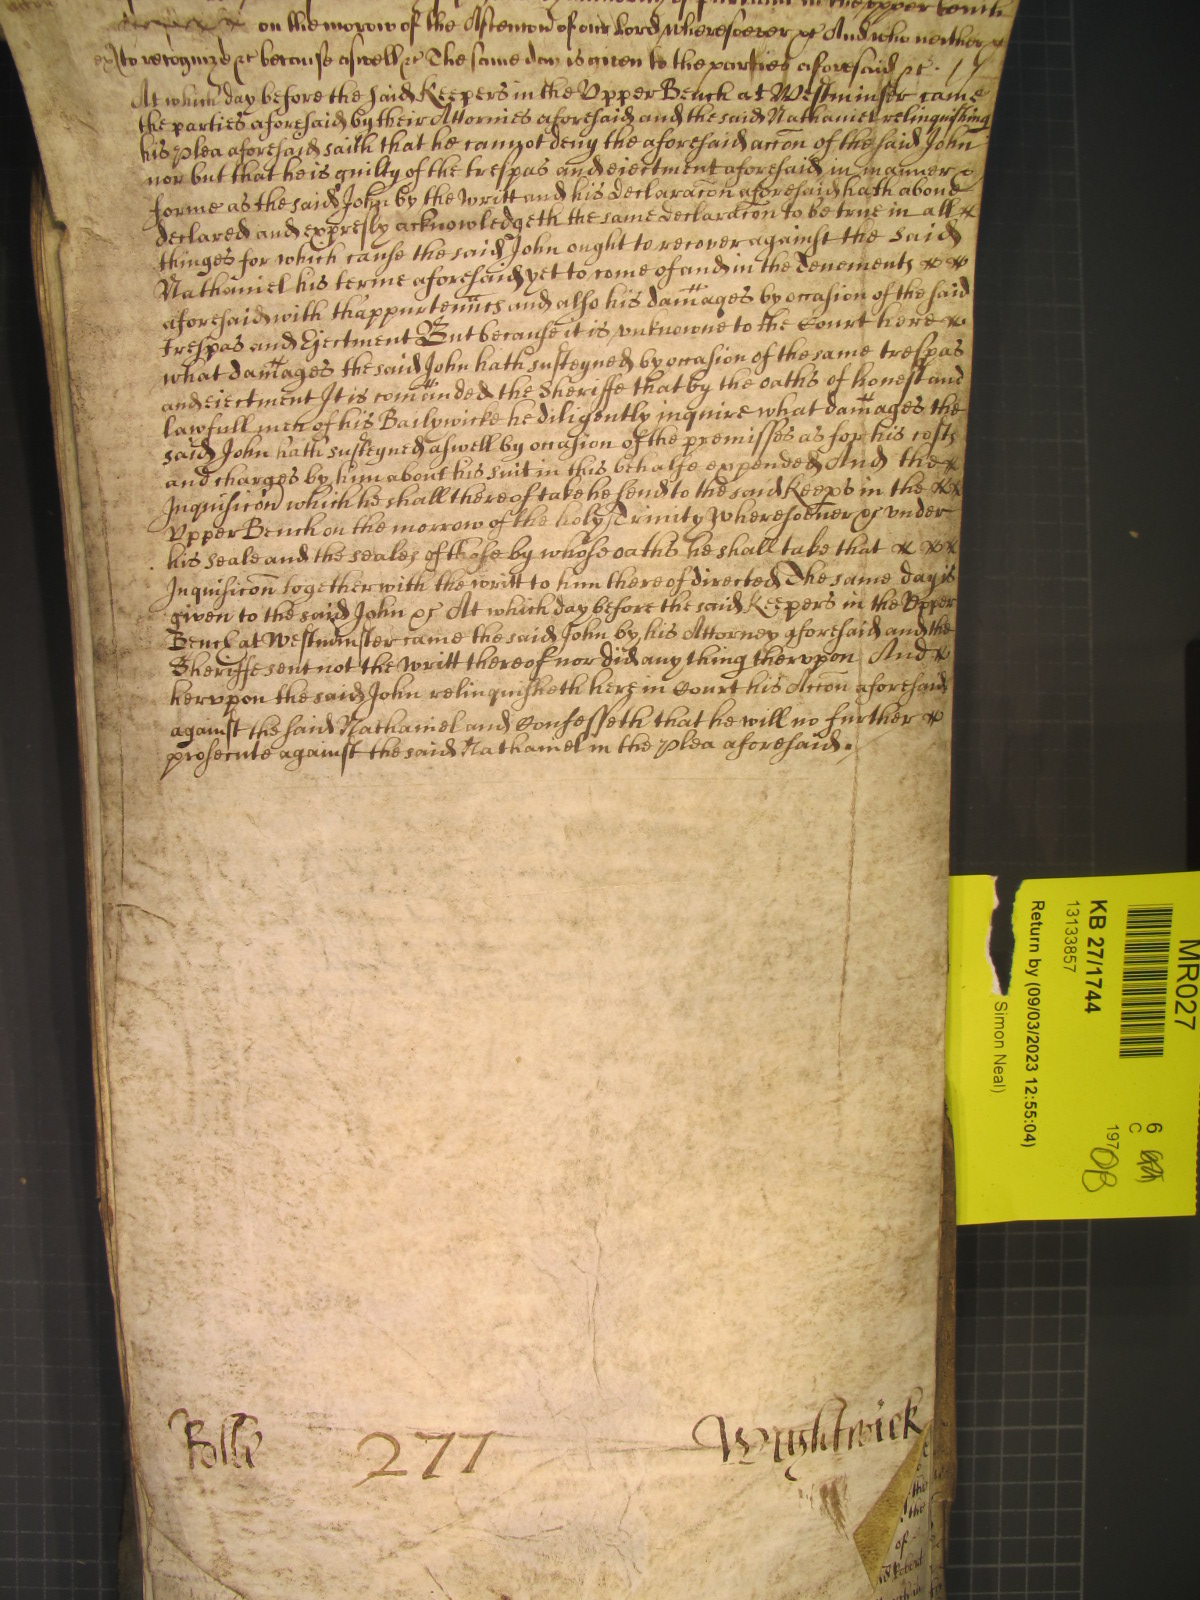 on the morow of the Ascension of our Lord wheresoever &c And who neither &c
to recognize &c because aswell &c The same day is given to the parties aforesaid &c.
At which day before the said Keepers in the Upper Bench at Westminster came
the parties aforesaid by their Attornies aforesaid and the said Nathaniel relinquishing
his plea aforesaid saith that he cannot deny the aforesaid accon of the said John
nor but that he is guilty of the trespas and eiectment aforesaid in manner &
forme as the said John by the writt and his declaracon aforesaid hath above
declared and expresly acknowledgeth the same declaracon to be true in all
thinges for which cause the said John ought to recover against the said
Nathaniel his terme aforesaid yet to come of and in the Tenements
aforesaid with thappurtennces and also his dammages by occasion of the said
Trespas and Ejectment But because it is unknowne to the Court here
what dammages the said John hath susteyned by occasion of the same trespas
and eiectment It is comaunded the Sheriffe that by the oaths of honest and
lawfull men of his Bailywicke he diligently inquire what dammages the
said John hath susteyned aswell by occasion of the premisses as for his costs
and charges by him about his suit in this behalfe expended And the
Inquisicon which he shall thereof take he send to the said Keeps in the
Upper Bench on the morrow of the holy Trinity wheresoever &c under
his seale and the seales of those by whose oaths he shall take that
Inquisicon together with the writt to him thereof directed The same day is
given to the said John &c At which day before the said Keepers in the Upper
Bench at Westminster came the said John by his Attorney aforesaid and the
Sheriffe sent not the writt thereof nor did any thing thervpon And
hervpon the said John relinquisheth here in Court his Accon aforesaid
against the said Nathaniel and Confesseth that he will no further
prosecute against the said Nathaniel in the plea aforesaid.
277
Wightwick
MR027
KB 27/1744
13133857
Return by (09/03/2023 12:55:04)
Simon Neal)
6
C
197